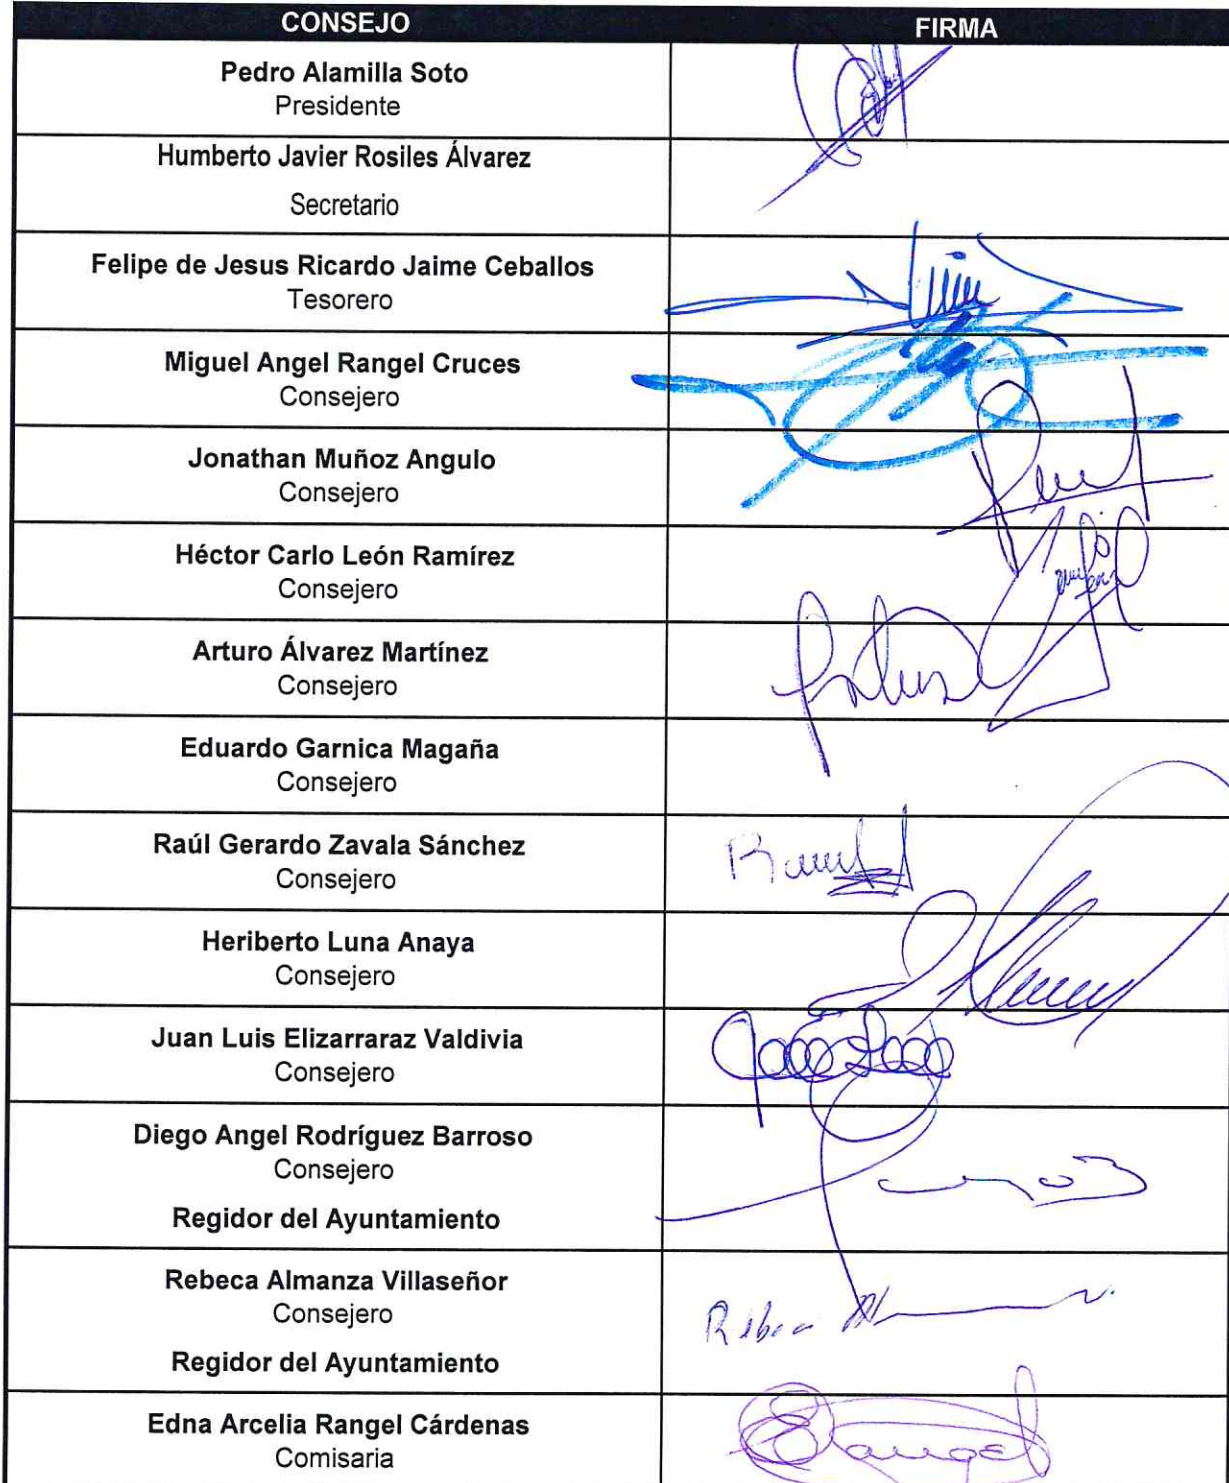 CONSEJO FIRMA
Pedro Alamilla Soto
Presidente
Humberto Javier Rosiles Álvarez
Secretario
Felipe de Jesus Ricardo Jaime Ceballos
Tesorero
Miguel Angel Rangel Cruces
Consejero
Jonathan Muñoz Angulo
Consejero
Héctor Carlo León Ramírez
Consejero
Arturo Álvarez Martínez
Consejero
Eduardo Garnica Magaña
Consejero
Raúl Gerardo Zavala Sánchez
Consejero
Heriberto Luna Anaya
Consejero
Juan Luis Elizarraraz Valdivia
Consejero
Diego Angel Rodríguez Barroso
Consejero
Regidor del Ayuntamiento
Rebeca Almanza Villaseñor
Consejero
Rebeca
Regidor del Ayuntamiento
Edna Arcelia Rangel Cárdenas
Rangel
Comisaria